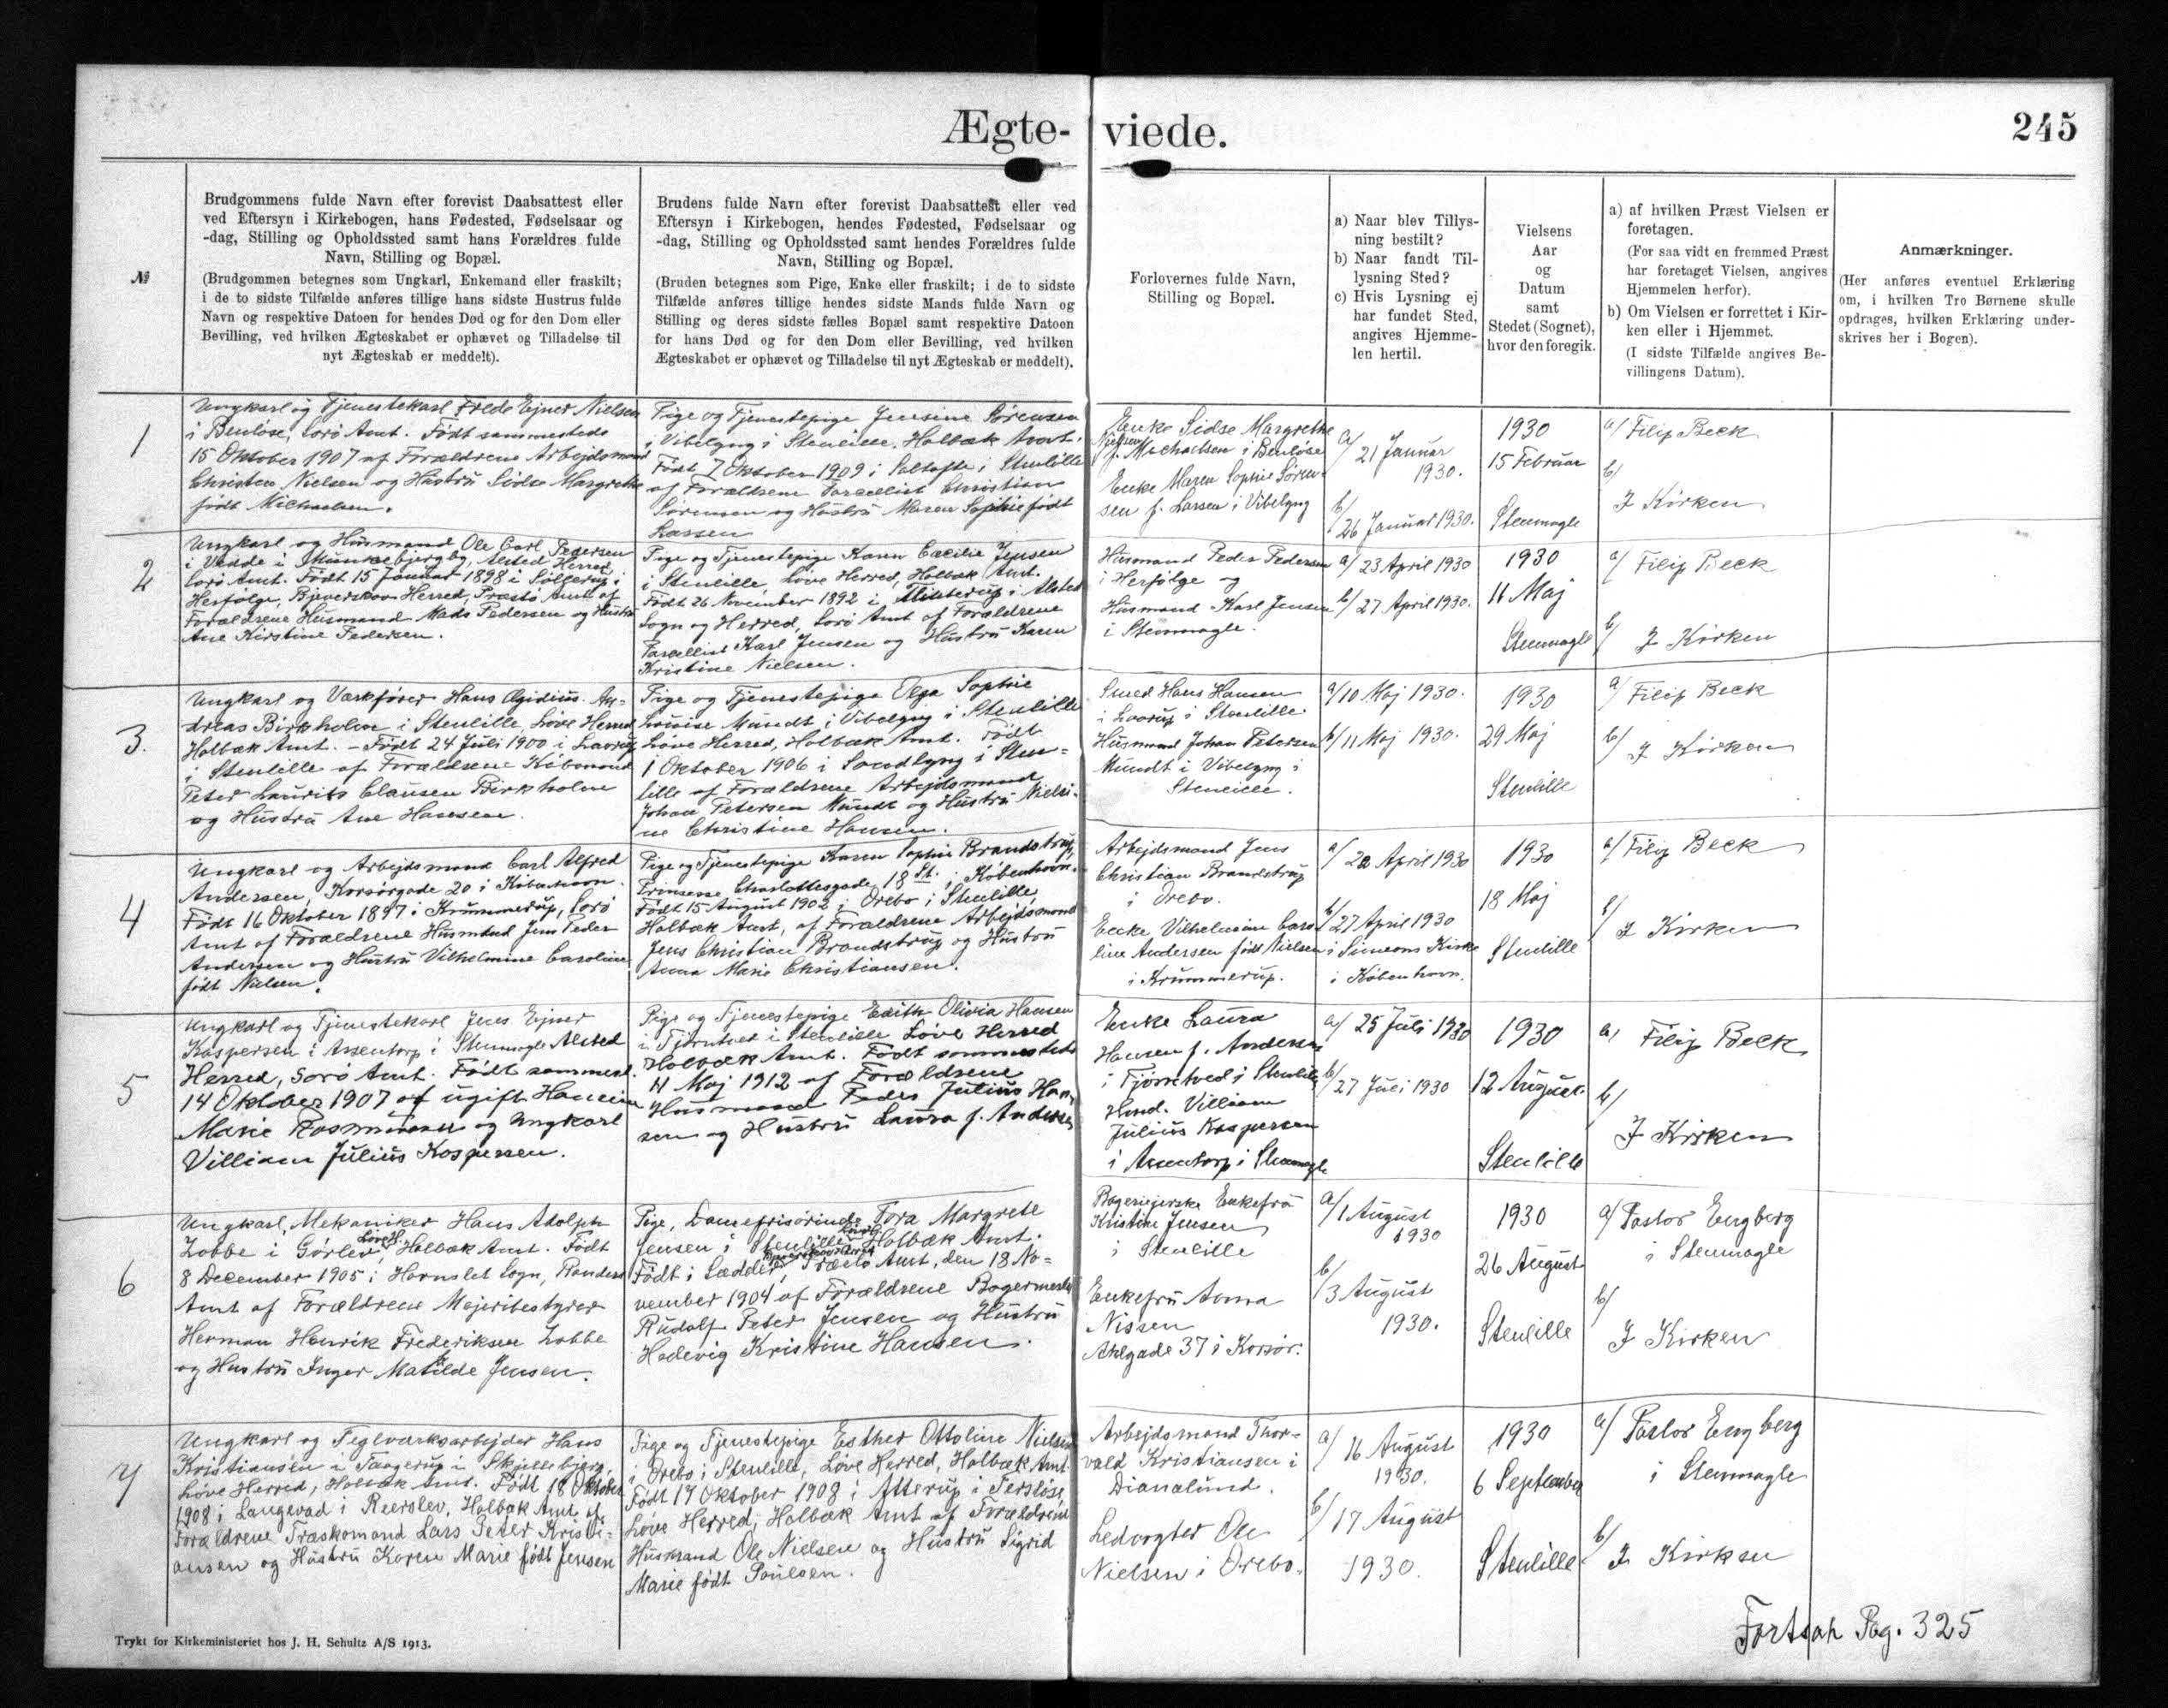 Ægte- viede.
245
№
Brudgommens fulde Navn efter forevist Daabsattest eller
ved Eftersyn i Kirkebogen, hans Fødested, Fødselsaar og
-dag, Stilling og Opholdssted samt hans Forældres fulde
Navn, Stilling og Bopæl.
(Brudgommen betegnes som Ungkarl, Enkemand eller fraskilt;
i de to sidste Tilfælde anføres tillige hans sidste Hustrus fulde
Navn og respektive Datoen for hendes Død og for den Dom eller
Bevilling, ved hvilken Ægteskabet er ophævet og Tilladelse til
nyt Ægteskab er meddelt).
Brudens fulde Navn efter forevist Daabsattest eller ved
Eftersyn i Kirkebogen, hendes Fødested, Fødselsaar og
-dag, Stilling og Opholdssted samt hendes Forældres fulde
Navn, Stilling og Bopæl.
(Bruden betegnes som Pige, Enke eller fraskilt; i de to sidste
Tilfælde anføres tillige hendes sidste Mands fulde Navn og
Stilling og deres sidste fælles Bopæl samt respektive Datoen
for hans Død og for den Dom eller Bevilling, ved hvilken
Ægteskabet er ophævet og Tilladelse til nyt Ægteskab er meddelt).
Forlovernes fulde Navn,
Stilling og Bopæl.
a) Naar blev Tillys-
ning bestilt?
b) Naar fandt Til-
lysning Sted?
c) Hvis Lysning ej
har fundet Sted,
angives Hjemme-
len hertil.
Vielsens
Aar
og
Datum
samt
Stedet (Sognet),
hvor den foregik.
a) af hvilken Præst Vielsen er
foretagen.
(For saa vidt en fremmed Præst
har foretaget Vielsen, angives
Hjemmelen herfor).
b) Om Vielsen er forrettet i Kir-
ken eller i Hjemmet.
(I sidste Tilfælde angives Be-
villingens Datum).
Anmærkninger.
(Her anføres eventuel Erklæring
om, i hvilken Tro Børnene skulle
opdrages, hvilken Erklæring under-
skrives her i Bogen).
1
Ungkarl og Tjenestekarl Frede Ejner Nielsen
i Benløse, Sorø Amt. Født sammesteds
15 Oktober 1907 af Forældrene Arbejdsmand
Christen Nielsen og Hustru Sidse Margrethe
født Michaelsen.
Pige og Tjenestepige Jensine Sørensen
i Vibelyng i Stenlille. Holbæk Amt.
Født 7 Oktober 1909 i Soltofte i Stenlille
af Forældrene Parcellist Christian
Sørensen og Hustru Maren Sophie født
Larsen
Enke Sidse Margrethe
Nielsen f. Michaelsen i Benløse
Enke Maren Sophie Søren-
sen f. Larsen i Vibelyng
a/ 21 Januar
1930.
b/ 26 Januar 1930.
1930
15 Februar
Stenmagle
a/ Filip Beck
b/
I Kirken
2
Ungkarl og Husmand Ole Carl Pedersen
i Vedde i Munkebjergby, Alsted Herred,
Sorø Amt. Født 15 Januar 1898 i Sollerup i
Herfølge, Bjeverskov Herred, Præstø Amt af
Forældrene Husmand Mads Pedersen og Hustru
Ane Kirstine Pedersen.
Pige og Tjenestepige Karen Cæcilie Jensen
i Stenlille, Løve Herred, Holbæk Amt.
Født 26 November 1892 i Flinterup i Alsted
Sogn og Herred, Sorø Amt af Forældrene
Parcellist Karl Jensen og Hustru Karen
Kristine Nielsen.
Husmand Peder Pedersen
i Herfølge og
Husmand Karl Jensen
i Stenmagle.
a/ 23 April 1930
b/ 27 April 1930.
1930
11 Maj
Stenmagle
a/ Filip Beck
b/
I Kirken
3.
Ungkarl og Værkfører Hans Ægidius An-
dreas Birkholm i Stenlille, Løve Herred
Holbæk Amt. - Født 24 Juli 1900 i Laarup
i Stenlille af Forældrene Købmand
Peter Laurits Clausen Birkholm
og Hustru Ane Hansen.
Pige og Tjenestepige Olga Sophie
Louise Mundt i Vibelyng i Stenlille
Løve Herred, Holbæk Amt. Født
1 Oktober 1906 i Sandlyng i Sten-
lille af Forældrene Arbejdsmand
Johan Petersen Mundt og Hustru Nielsi-
ne Christine Hansen.
Smed Hans Hansen
i Laarup i Stenlille.
Husmand Johan Petersen
Mundt i Vibelyng i
Stenlille.
a/ 10 Maj 1930.
b/ 11 Maj 1930.
1930
29 Maj
Stenlille
a/ Filip Beck
b/ I Kirken
4
Ungkarl og Arbejdsmand Carl Alfred
Andersen, Korsørgade 20 i København.
Født 16 Oktober 1897 i Krummerup, Sorø
Amt af Forældrene Husmand Jens Peder
Andersen og Hustru Vilhelmine Caroline
født Nielsen.
Pige og Tjenestepige Karen Sophie Brandstrup,
Prinsesse Charlottesgade 18 St. i København.
Født 15 August 1902 i Orebo i Stenlille,
Holbæk Amt, af Forældrene Arbejdsmand
Jens Christian Brandstrup og Hustru
Anna Marie Christiansen.
Arbejdsmand Jens
Christian Brandstrup
i Orebo.
Enke Vilhelmine Caro-
line Andersen født Nielsen
i Krummerup.
a/ 22 April 1930
b/ 27 April 1930
i Simeons Kirke
i København.
1930
18 Maj
Stenlille
a/ Filip Beck
b/
I Kirken
5
Ungkarl og Tjenestekarl Jens Ejner
Kaspersen i Assentorp i Stenmagle Alsted
Herred, Sorø Amt. Født sammest.
14 Oktober 1907 af ugift Hansine
Marie Rasmussen og Ungkarl
Villiam Julius Kaspersen.
Pige og Tjenestepige Edith Olivia Hansen
i Tjørntved i Stenlille Løve Herred
Holbæk Amt. Født sammesteds
11 Maj 1912 af Forældrene
Husmand Peder Julius Han-
sen og Hustru Laura f. Andersen
Enke Laura
Hansen f. Andersen
i Tjørntved i Stenlille
Hmd. Villiam
Julius Kaspersen
i Assentorp i Stenmagle
a/ 25 Juli 1930
b/ 27 Juli 1930
1930
12 August
Stenlille
a/ Filip Beck
b/
I Kirken
6
Ungkarl, Mekaniker Hans Adolph
Lobbe i Gørlev, Løve H. Holbæk Amt. Født
8 December 1905 i Hornslet Sogn, Randers
Amt af Forældrene Mejeribestyrer
Herman Henrik Frederiksen Lobbe
og Hustru Inger Matilde Jensen.
Pige, Damefrisørinde Tora Margrete
Jensen i Stenlille Løve H. Holbæk Amt.
Født i Lædder, Præstø Amt, den 18 No-
vember 1904 af Forældrene Bagermester
Rudolf Peter Jensen og Hustru
Hedevig Kristine Hansen.
Bageriejerske Enkefru
Kristine Jensen
i Stenlille
Enkefru Anna
Nissen
Ahlgade 37 i Korsør.
a/ 1 August
1930
b/ 3 August
1930.
1930
26 August
Stenlille
a/ Pastor Engberg
i Stenmagle
b/
I Kirken
7
Ungkarl og Teglværksarbejder Hans
Kristiansen i Taagerup i Skjellebjerg,
Løve Herred, Holbæk Amt. Født 18 Oktober
1908 i Langevad i Reerslev, Holbæk Amt af
Forældrene Træskomand Lars Peter Kristi-
ansen og Hustru Karen Marie født Jensen
Pige og Tjenestepige Esther Ottoline Nielsen
i Orebo i Stenlille, Løve Herred, Holbæk Amt.
Født 17 Oktober 1908 i Atterup i Tersløse,
Løve Herred, Holbæk Amt af Forældrene
Husmand Ole Nielsen og Hustru Sigrid
Marie født Poulsen.
Arbejdsmand Thor-
vald Kristiansen i
Dianalund.
Ledvogter Ole
Nielsen i Orebo.
a/ 16 August
1930.
b/ 17 August
1930.
1930
6 September
Stenlille
a/ Pastor Engberg
i Stenmagle
b/ I Kirken
Fortsah Pag. 325
Trykt for Kirkeministeriet hos J. H. Schultz A/S 1913.